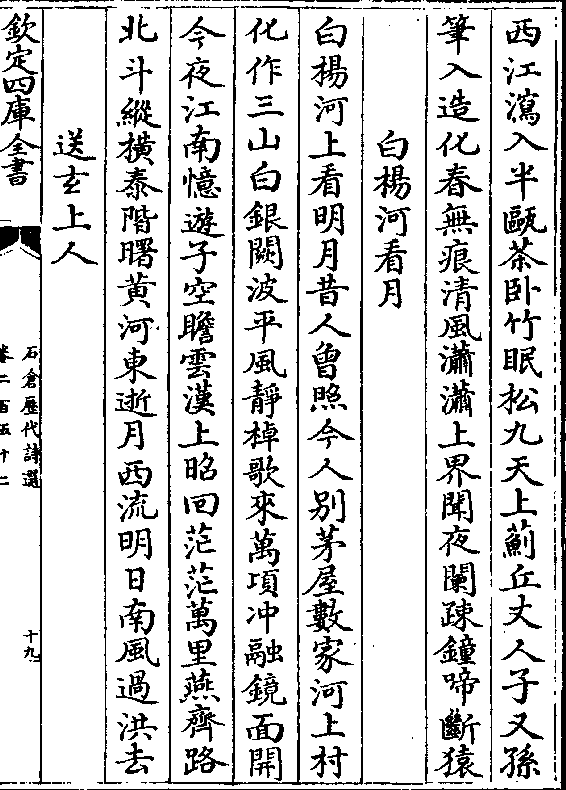 西江瀉入半甌茶卧竹眠松九天上薊丘丈人子又孫
筆入造化春無痕清風瀟瀟上界聞夜闌踈鐘啼斷猿
白楊河看月
白楊河上看明月昔人曾照今人别茅屋數家河上村
化作三山白銀闕波平風靜棹歌來萬頃冲融鏡面開
今夜江南憶遊子空瞻雲漢上昭回茫茫萬里燕齊路
北斗縱横泰階曙黄河東逝月西流明日南風過洪去
送玄上人
欽定四庫全書
石倉歷代詩選
卷二百五十二
十九